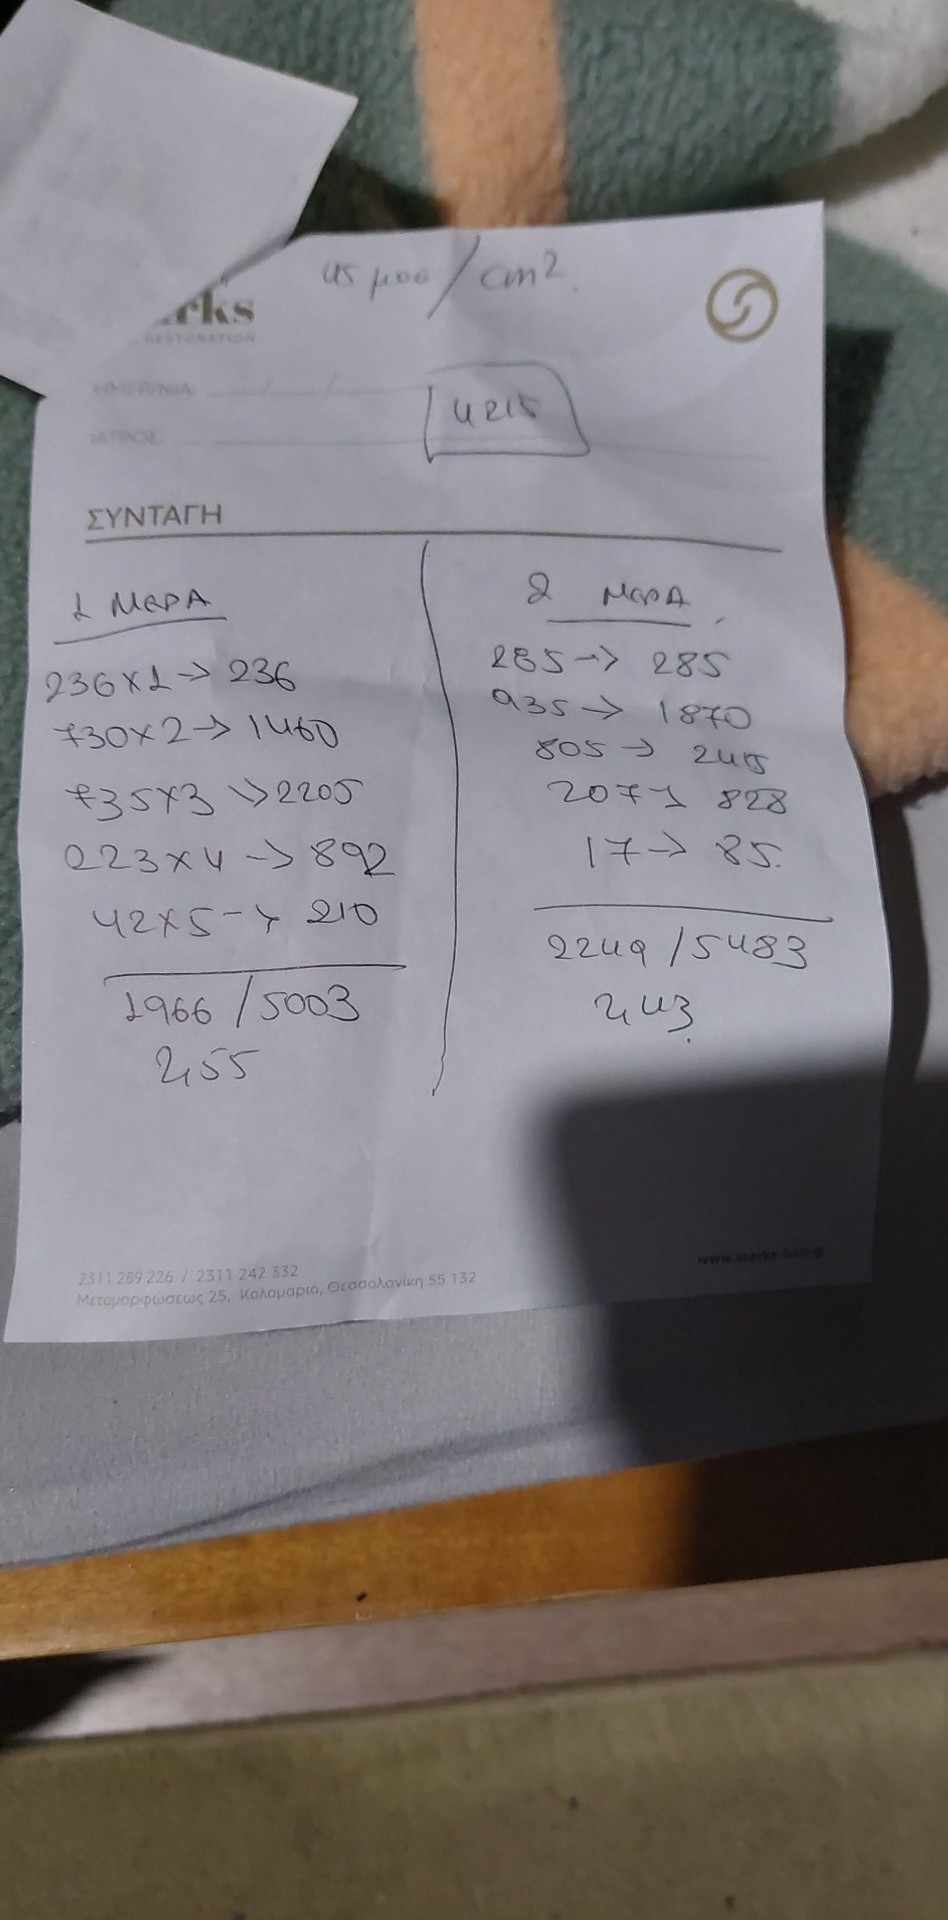 45 μοσ/cm2.
rks
RESTORATION
ΗΜΕΡΟΜΗΝΙΑ: / /
ΙΑΤΡΟΣ:
4215
ΣΥΝΤΑΓΗ
1 ΜΕΡΑ
236x1→236
730x2→1460
735x3→2205
223x4→892
42x5→210
1966/5003
2,55
2 ΜΕΡΑ
285→285
935→1870
805→2415
207→828
17→85.
2249/5483
2,43.
2311 289 226 / 2311 242 332
Μεταμορφώσεως 25, Καλαμαριά, Θεσσαλονίκη 55 132